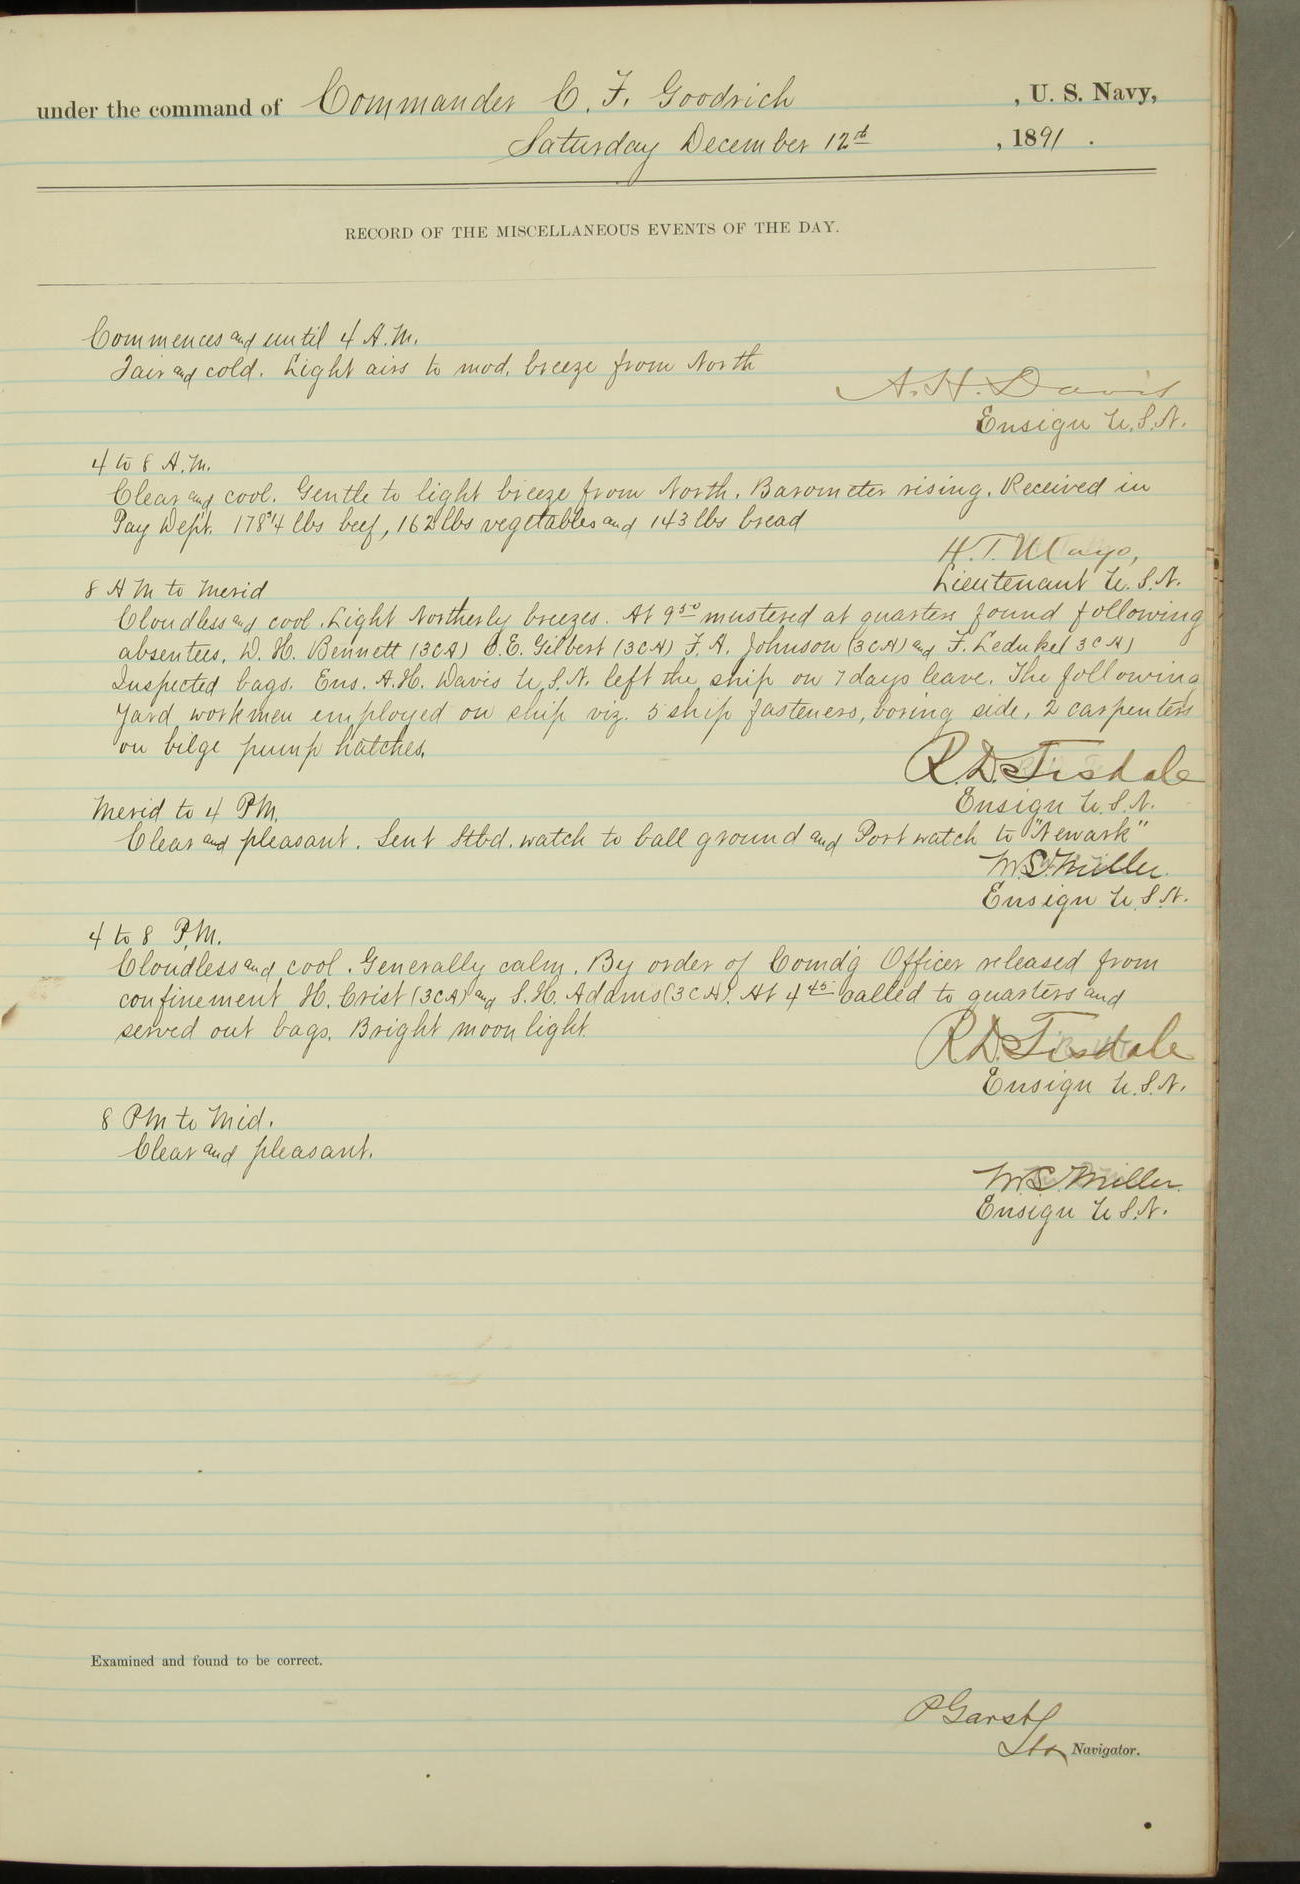 under the command of Commander C. F. Goodrich, U. S. Navy,
Saturday December 12th, 1891.
RECORD OF THE MISCELLANEOUS EVENTS OF THE DAY.
Commences and until 4 A.M.
Fair and cold. Light airs to mod. breeze from North
A. H. Davis
Ensign U.S.N.
4 to 8 A.M.
Clear and cool. Gentle to light breeze from North. Barometer rising. Received in
Pay Dept. 178 3/4 lbs beef, 162 lbs vegetables and 143 lbs bread
H. T. Mayo,
Lieutenant U.S.N.
8 AM to Merid
Cloudless and cool. Light Northerly breezes. At 9 50 mustered at quarters found following
absentees, W. H. Bennett (3CA) C. E. Gilbert (3CA) F. A. Johnson (3CA) and F. Ledukel 3CA)
Inspected bags. Ens. A. H. Davis U.S.N. left the ship on 7 days leave. The following
Yard workmen employed on ship viz. 5 ship fasteners, boring side, 2 carpenters
on bilge pump hatches.
R. D. Tisdale
Ensign U.S.N.
Merid to 4 PM.
Clear and pleasant. Sent Stbd. watch to ball ground and Port watch to "Newark"
Miller
Ensign U.S.N.
4 to 8 P.M.
Cloudless and cool. Generally calm. By order of Comd'g Officer released from
confinement H. Crist (3CA) and S. H. Addms (3CA). At 4 45 called to quarters and
served out bags. Bright moonlight.
R. D. Tisdale
Ensign U.S.N.
8 PM to Mid.
Clear and pleasant.
Miller
Ensign U.S.N.
Examined and found to be correct.
P Garst
Navigator.